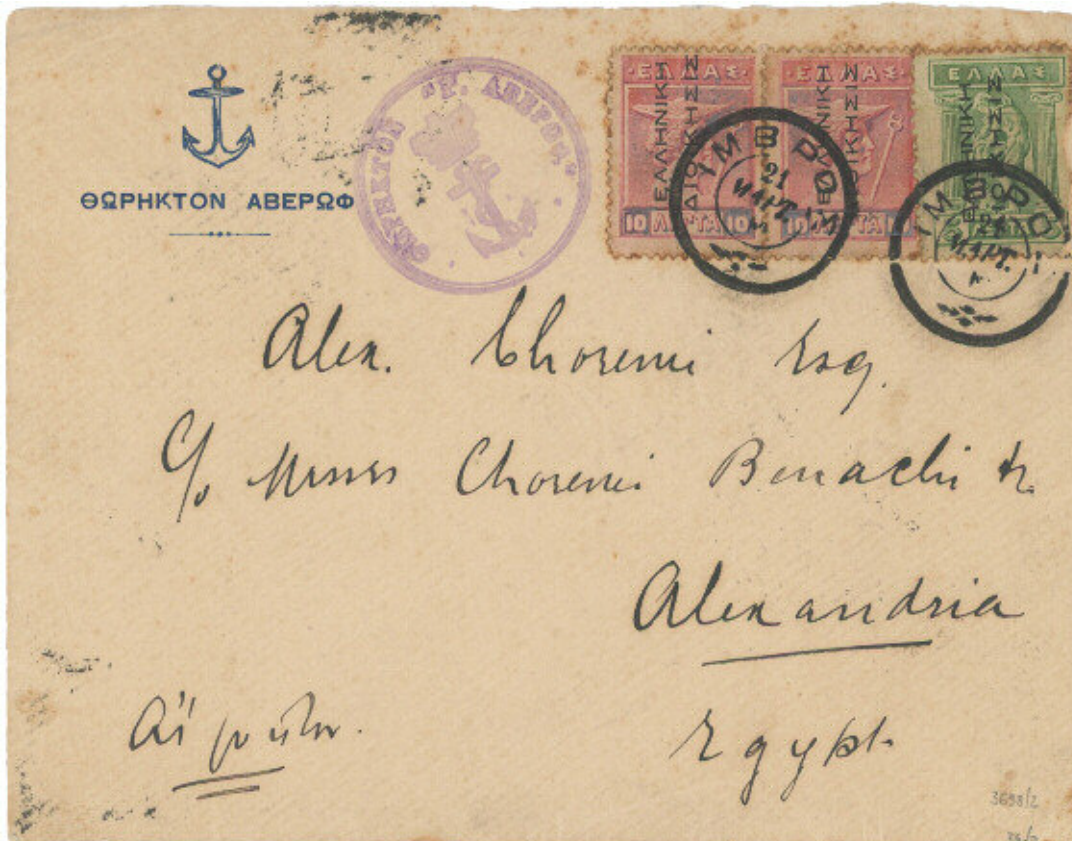 ΘΩΡΗΚΤΟΝ ΑΒΕΡΩΦ
ΘΩΡΗΚΤΟΝ "Γ. ΑΒΕΡΩΦ"
ΕΛΛΑΣ
ΕΛΛΗΝΙΚΗ
ΔΙΟΙΚΗΣΙΣ
10 ΛΕΠΤΑ 10
ΕΛΛΑΣ
ΕΛΛΗΝΙΚΗ
ΔΙΟΙΚΗΣΙΣ
10 ΛΕΠΤΑ
ΕΛΛΑΣ
ΕΛΛΗΝΙΚΗ
ΔΙΟΙΚΗΣΙΣ
ΙΜΒΡΟ
21
ΜΑΡΤ.
ΙΜΒΡΟ
21
ΜΑΡΤ.
Alex. Choremi Esq.
C/o Messrs Choremi Benachi &
Alexandria
Egypt.
Αἴγυπτον.
3698/2